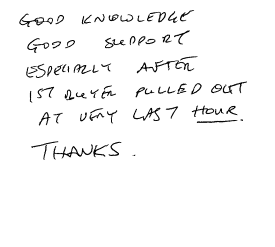 GOOD KNOWLEDGE
GOOD SUPPORT
ESPECIALLY AFTER
1ST BUYER PULLED OUT
AT VERY LAST HOUR.
THANKS.